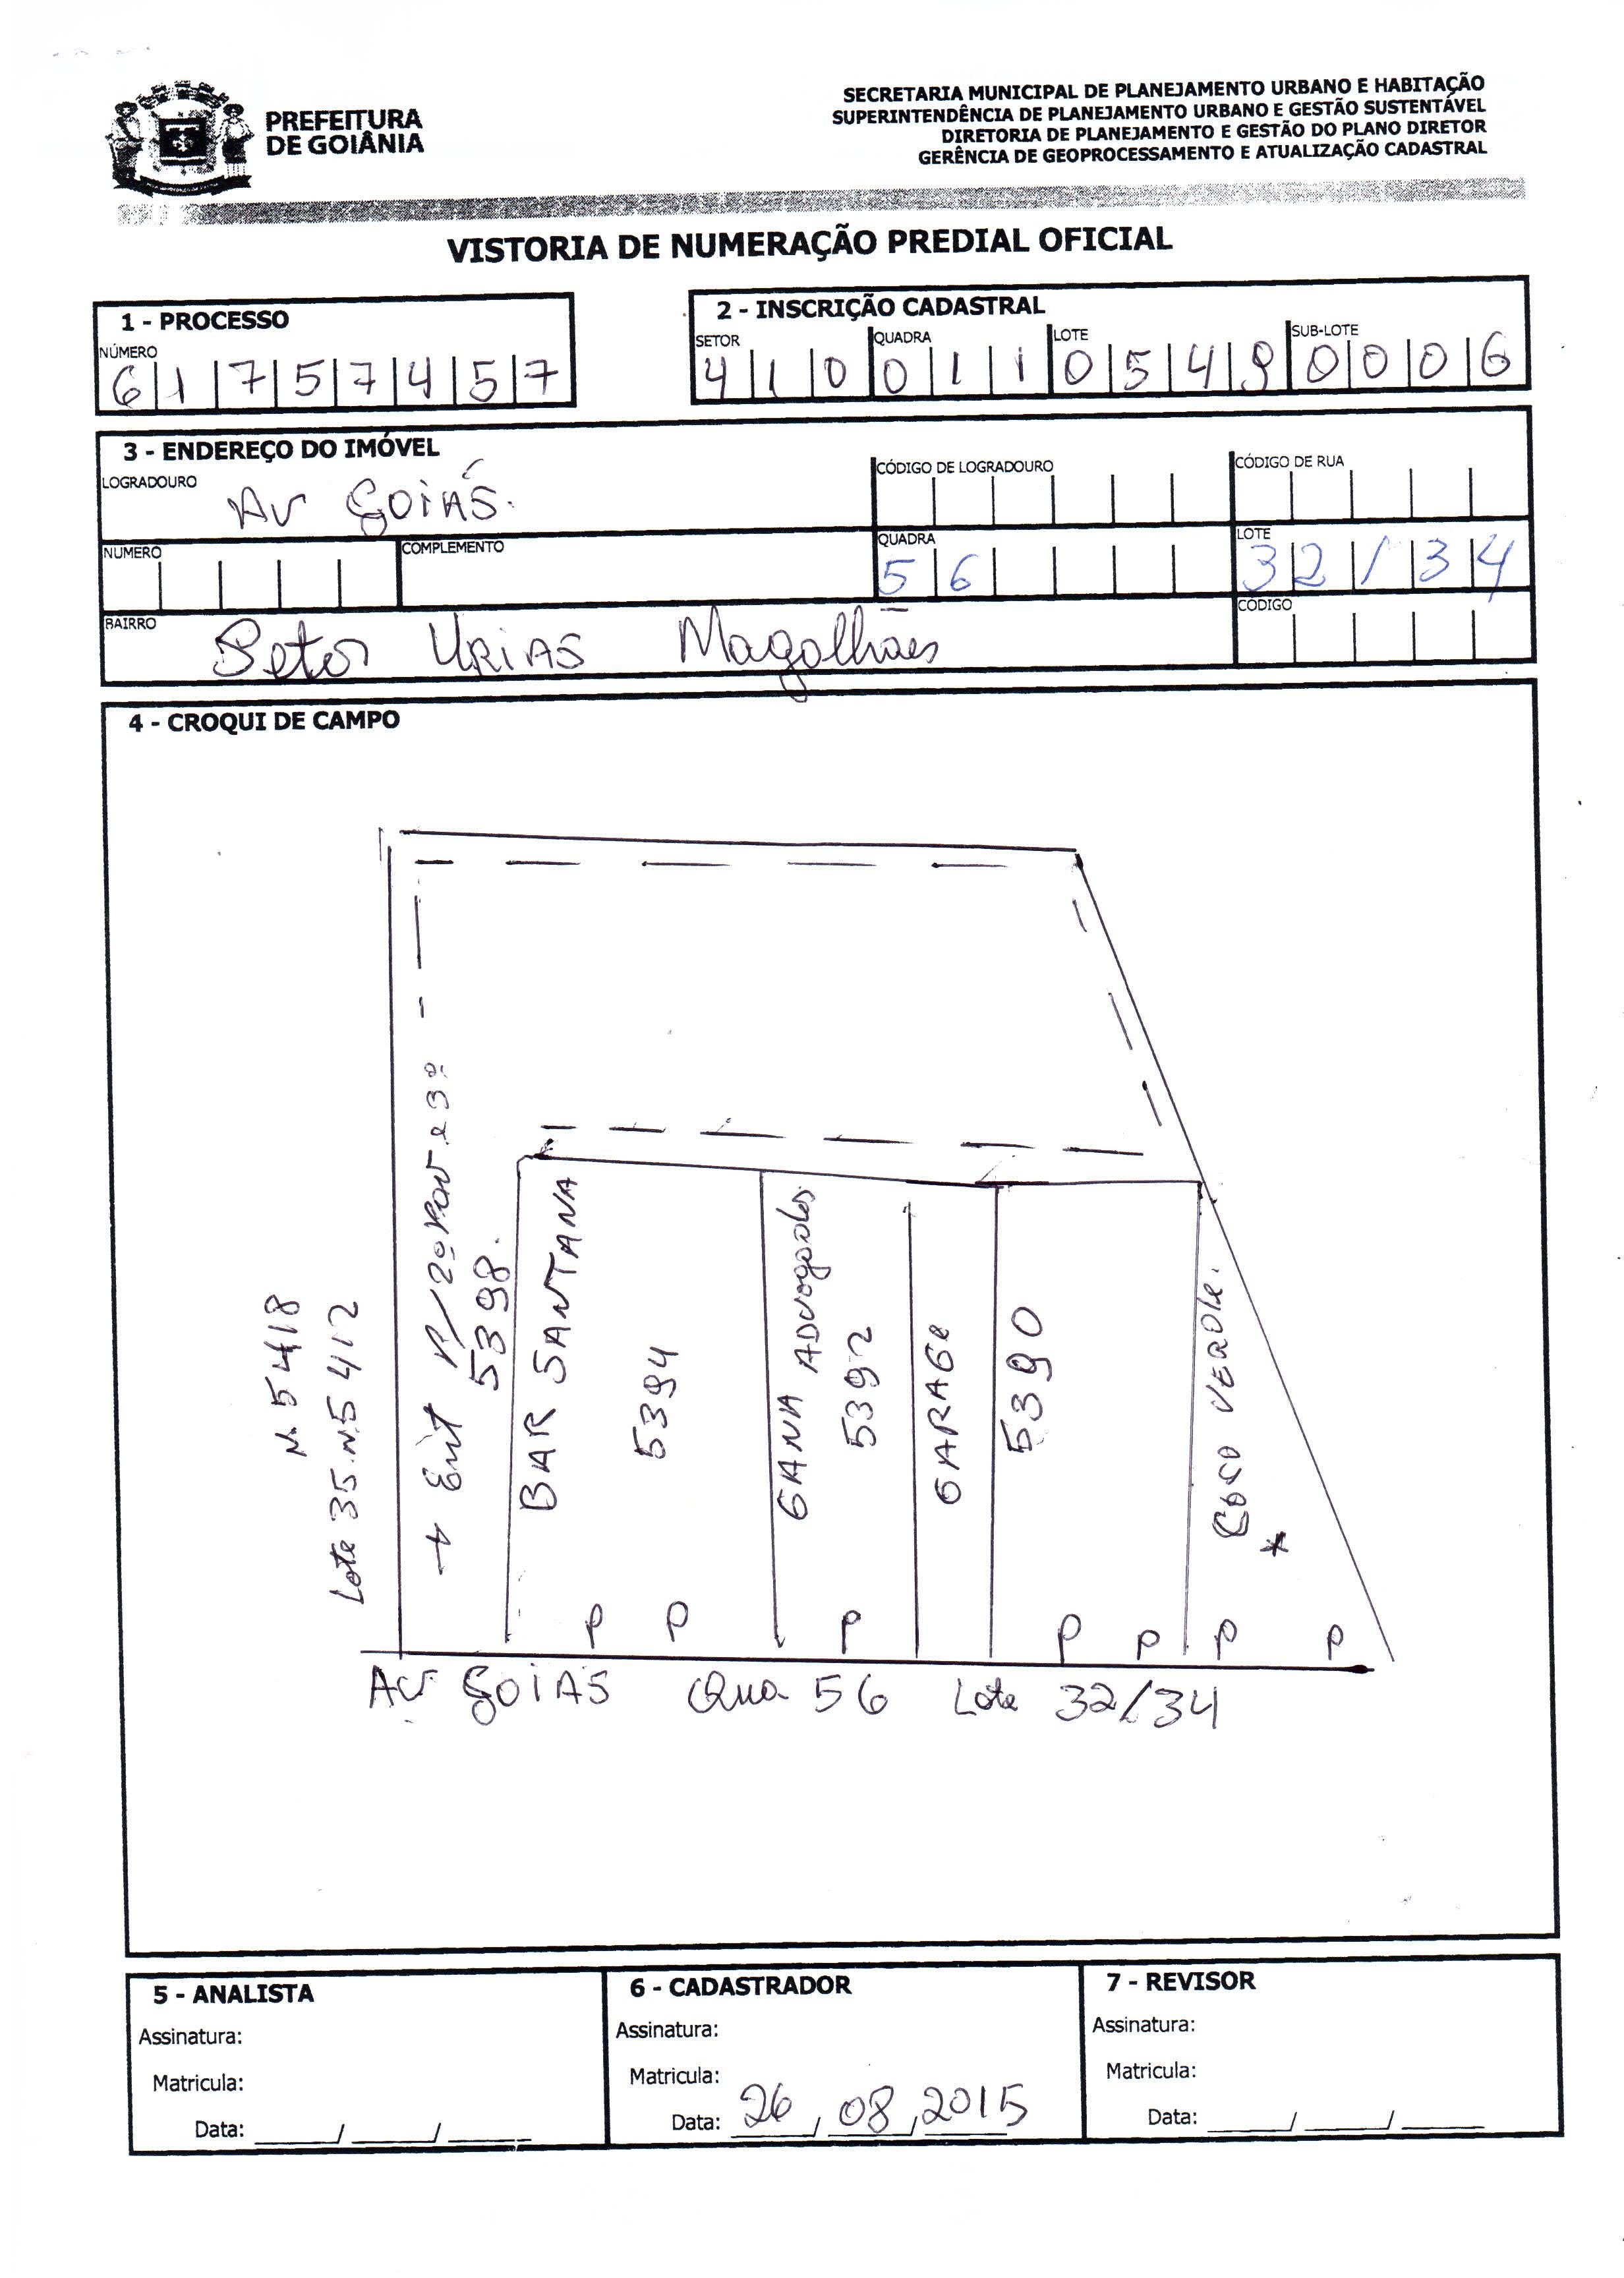 PREFEITURA
DE GOIÂNIA
SECRETARIA MUNICIPAL DE PLANEJAMENTO URBANO E HABITAÇÃO
SUPERINTENDÊNCIA DE PLANEJAMENTO URBANO E GESTÃO SUSTENTÁVEL
DIRETORIA DE PLANEJAMENTO E GESTÃO DO PLANO DIRETOR
GERÊNCIA DE GEOPROCESSAMENTO E ATUALIZAÇÃO CADASTRAL
VISTORIA DE NUMERAÇÃO PREDIAL OFICIAL
1 - PROCESSO
NÚMERO
6 1 7 5 7 4 5 7
2 - INSCRIÇÃO CADASTRAL
SETOR QUADRA LOTE SUB-LOTE
4 1 0 0 1 1 0 5 4 9 0 0 0 6
3 - ENDEREÇO DO IMÓVEL
LOGRADOURO Av GOIÁS.
CÓDIGO DE LOGRADOURO
CÓDIGO DE RUA
NÚMERO
COMPLEMENTO
QUADRA 5 6
LOTE 3 2 / 3 4
BAIRRO Setor URIAS Magalhães
CÓDIGO
4 - CROQUI DE CAMPO
N. 5418
Lote 35 N. 5412
Ent P/ 2º Pav. e 3º
5398.
BAR SANTANA
5394
GANA ADvogados
5392
GARAGe
5390
Coco VERDe.
*
P P P P P P P
Av GOIÁS Qua 56 Lote 32/34
5 - ANALISTA
Assinatura:
Matricula:
Data: ____/____/____
6 - CADASTRADOR
Assinatura:
Matricula:
Data: 26/08/2015
7 - REVISOR
Assinatura:
Matricula:
Data: ____/____/____